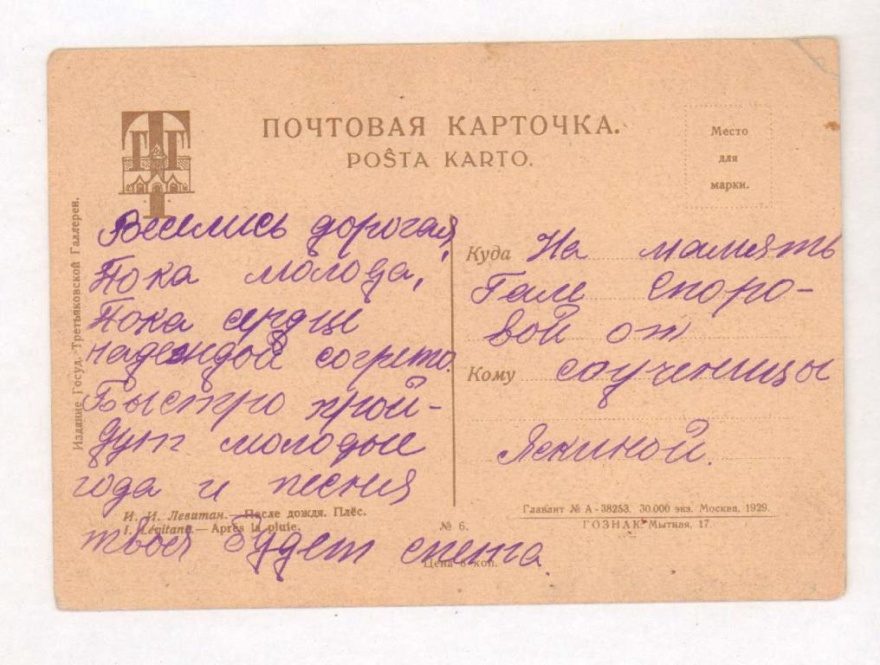 ПОЧТОВАЯ КАРТОЧКА.
POŜTA KARTO.
Место
для
марки.
Издание Госуд. Третьяковской Галлереи.
Веселись дорогая,
Пока молода,
Пока сердце
надеждой согрето.
Быстро прой-
дут молодые
года и песня
твоя будет спета
Куда На память
Гале Споро-
вой от
Кому соученицы
Яскиной.
И. И. Левитан.—После дождя. Плёс.
I. Lévitane.—Après la pluie.
№ 6.
Цена 8 коп.
Главлит № А-38253. 30.000 экз. Москва, 1929.
ГОЗНАК Мытная, 17.